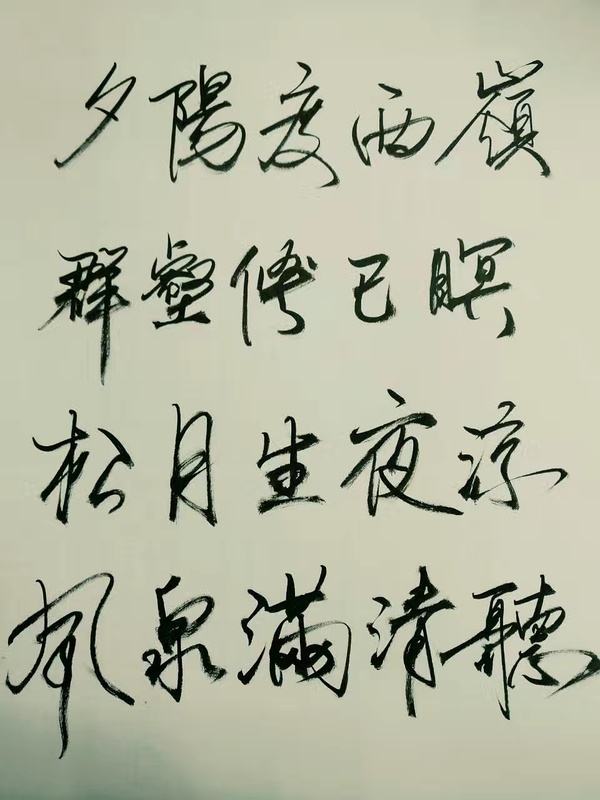 夕陽度西嶺
群壑倏已瞑
松月生夜涼
風泉滿清聽